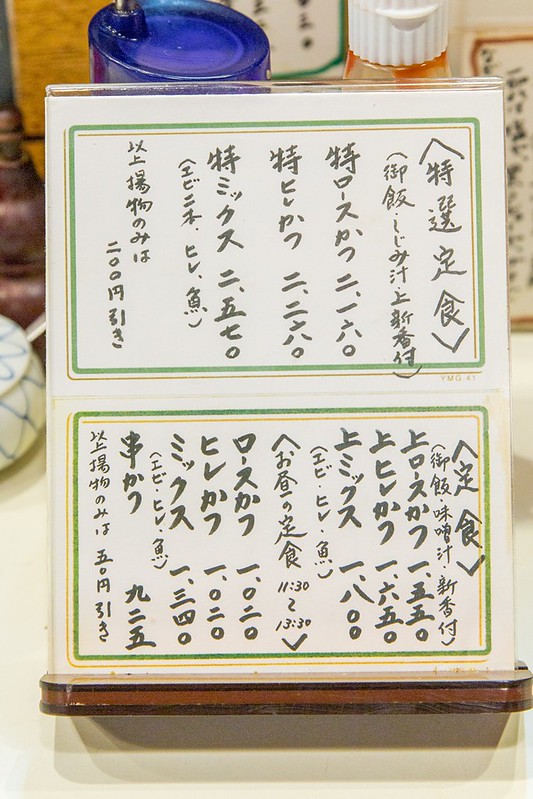 〈特選定食〉
（御飯・しじみ汁・上新香付）
特ロースかつ 二、一六〇
特ヒレかつ 二、二六〇
特ミックス 二、五七〇
（エビ二本・ヒレ、魚）
以上揚物のみは
二〇〇円引き
YMG 41
〈定食〉
（御飯・味噌汁・新香付）
上ロースかつ 一、五五〇
上ヒレかつ 一、六五〇
上ミックス 一、八〇〇
（エビ・ヒレ・魚）
〈お昼の定食 11:30〜13:30〉
ロースかつ 一、〇二〇
ヒレかつ 一、〇二〇
ミックス 一、三四〇
（エビ・ヒレ、魚）
串かつ 九二五
以上揚物のみは 五〇円引き